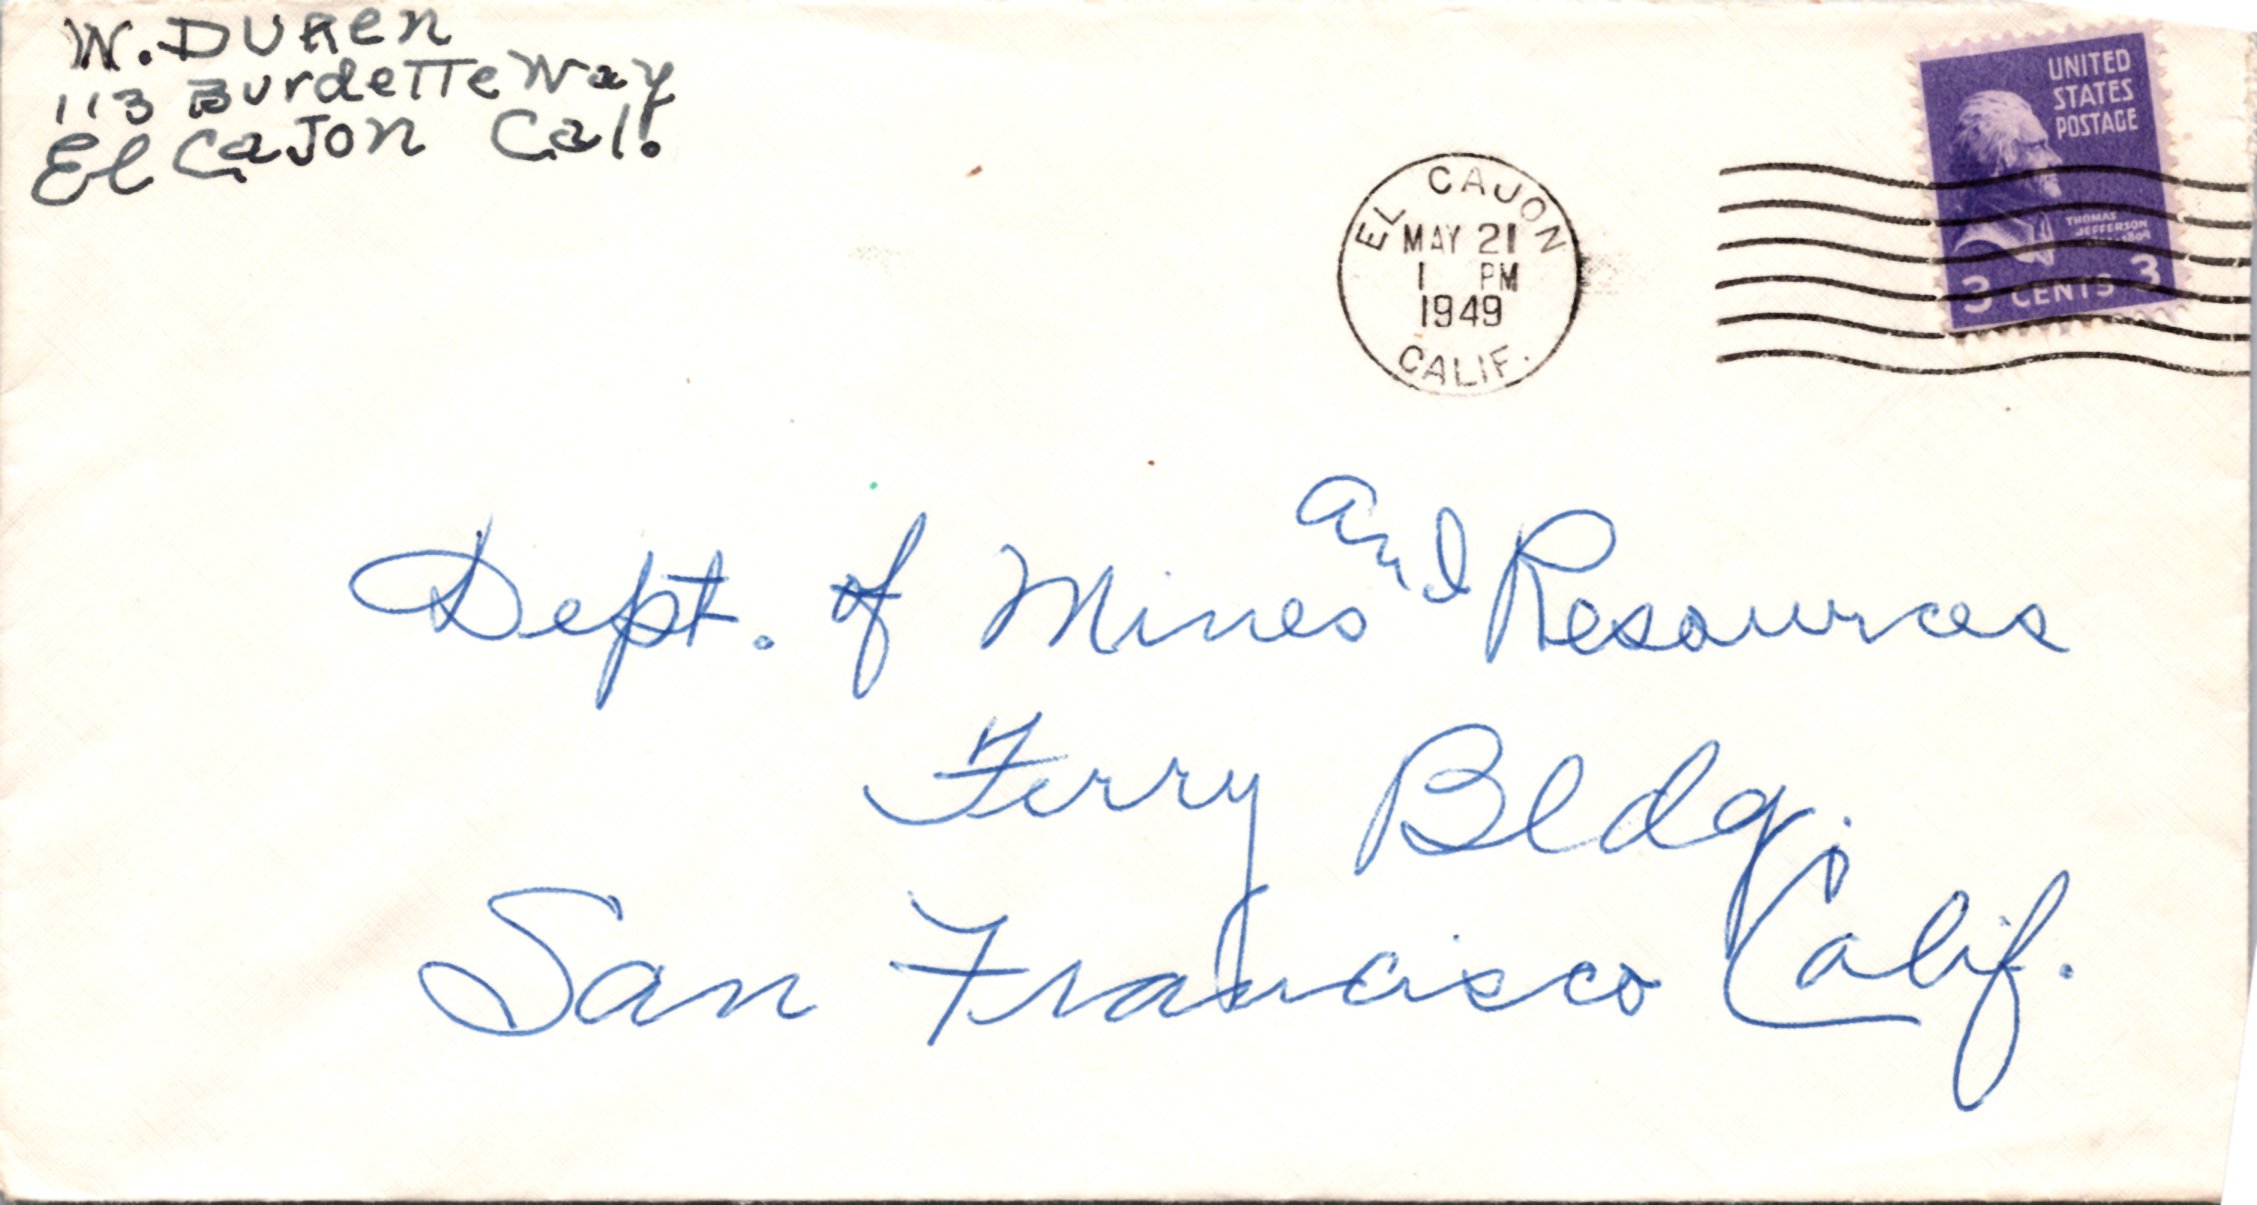 W. DUREN
113 Burdette Way
El Cajon Cal.
UNITED
STATES
POSTAGE
THOMAS
JEFFERSON
3 CENTS 3
EL CAJON
MAY 21
1 PM
1949
CALIF.
Dept. of Mines and Resources
Ferry Bldg.
San Francisco Calif.